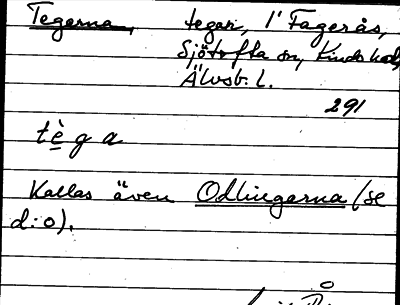 Tegarna, tegar, i Fagerås,
Sjötofta sn, Kinds hd,
Älvsb. l.
291
tèga
Kallas även Odlingarna (se
d:o).